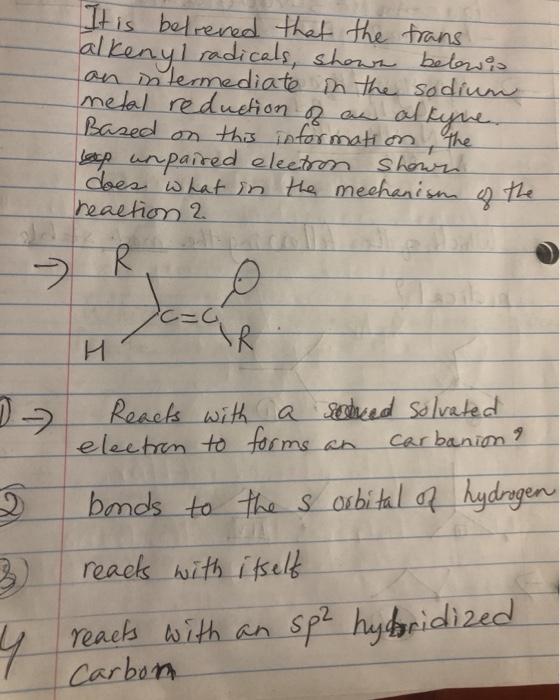 It is beleeved that the trans
alkenyl radicals, shown below is
an intermediate in the sodium
metal reduction of an alkyne.
Based on this information, the
unpaired electron shown
does what in the mechanism of the
reaction?
→ R
C=C
H R
1) → Reacts with a solvated
electron to forms an carbanion?
2) bonds to the s orbital of hydrogen
3) reacts with itself
4 reacts with an sp² hybridized
carbon